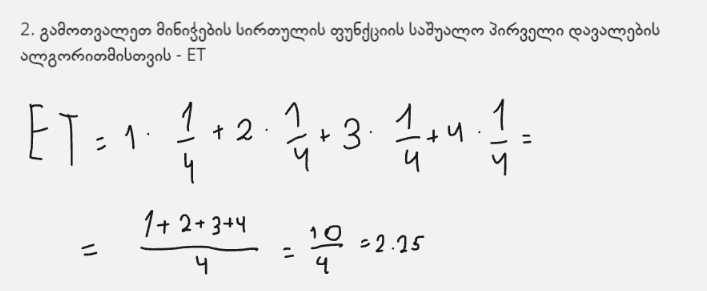 2. გამოთვალეთ მინიჭების სირთულის ფუნქციის საშუალო პირველი დავალების
ალგორითმისთვის - ET
ET = 1 · 1/4 + 2 · 1/4 + 3 · 1/4 + 4 · 1/4 =
= (1+2+3+4)/4 = 10/4 = 2.25